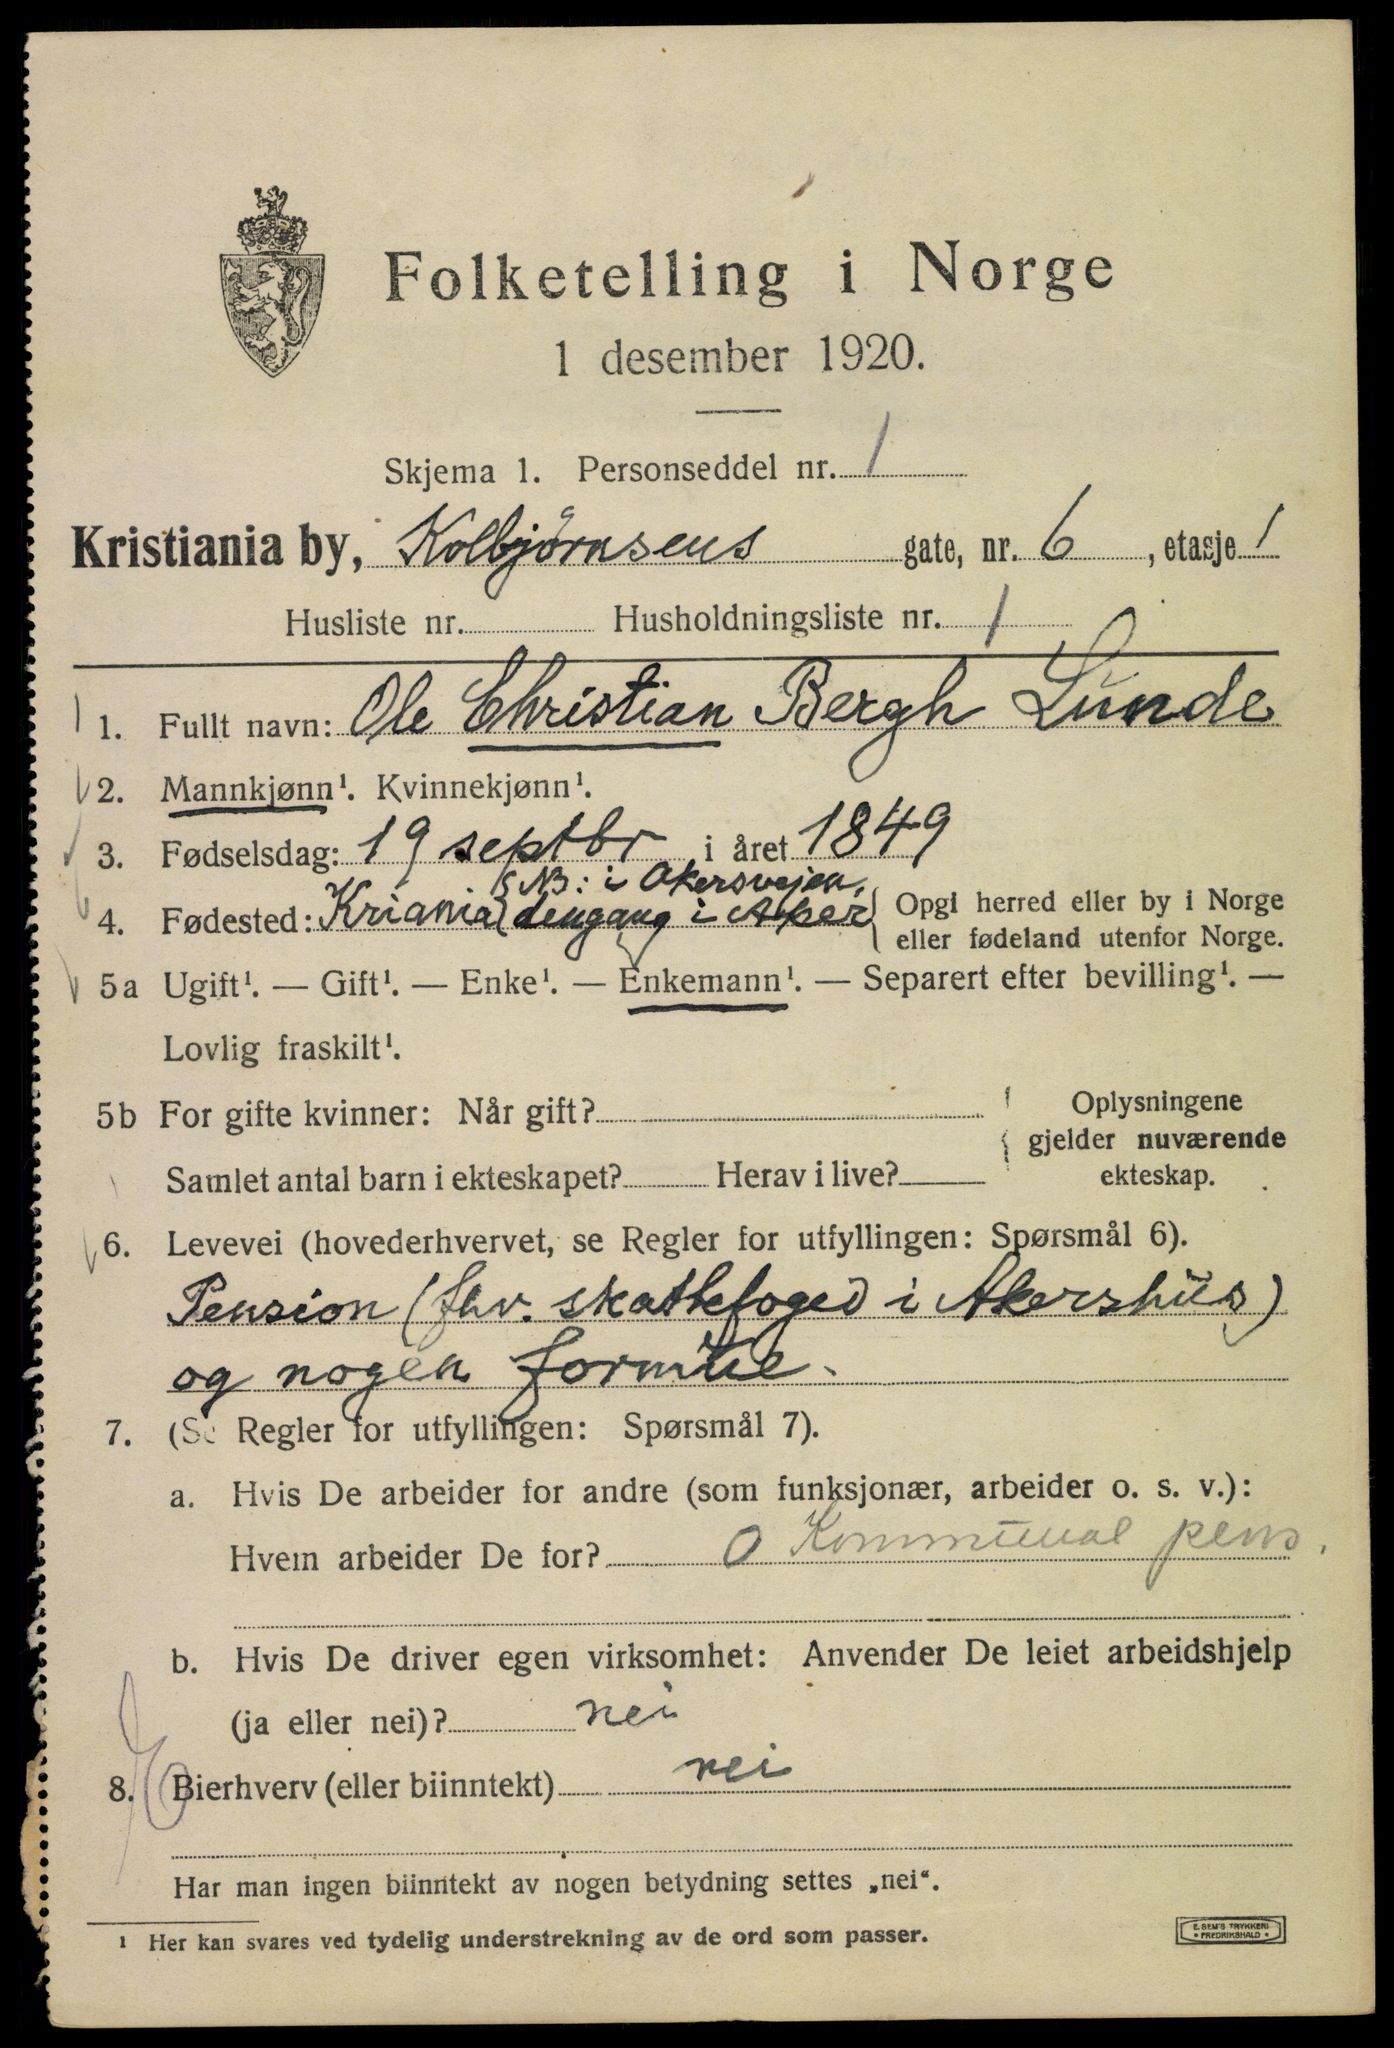 Folketelling i Norge
1 desember 1920.
Skjema 1. Personseddel nr. 1
Kristiania by, Kolbjørnsens gate, nr. 6, etasje 1
Husliste nr. Husholdningsliste nr. 1
1. Fullt navn: Ole Christian Bergh Lunde
2. Mannkjønn¹. Kvinnekjønn¹.
3. Fødselsdag: 19 septbr i året 1849
NB: i Akersvejen,
4. Fødested: Kriania dengang i Aker Opgi herred eller by i Norge
eller fødeland utenfor Norge.
5a Ugift¹. — Gift¹. — Enke¹. — Enkemann¹. — Separert efter bevilling¹. —
Lovlig fraskilt¹.
5b For gifte kvinner: Når gift? Oplysningene
gjelder nuværende
Samlet antal barn i ekteskapet? Herav i live? ekteskap.
6. Levevei (hovederhvervet, se Regler for utfyllingen: Spørsmål 6).
Pension (fhv. skattefoged i Akershus)
og nogen formue.
7. (Se Regler for utfyllingen: Spørsmål 7).
a. Hvis De arbeider for andre (som funksjonær, arbeider o. s. v.):
Hvem arbeider De for? 0 Kommunal pens.
b. Hvis De driver egen virksomhet: Anvender De leiet arbeidshjelp
(ja eller nei)? nei
8. Bierhverv (eller biinntekt) nei
Har man ingen biinntekt av nogen betydning settes „nei“.
1 Her kan svares ved tydelig understrekning av de ord som passer.
E. SEM'S TRYKKERI
• FREDRIKSHALD •